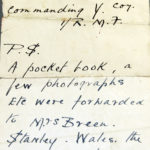 commanding Y. Coy.
1/R. M. F.
P.S.
A pocket book, a
few photographs
Etc were forwarded
to Mrs Breen.
Stanley. Wales. the